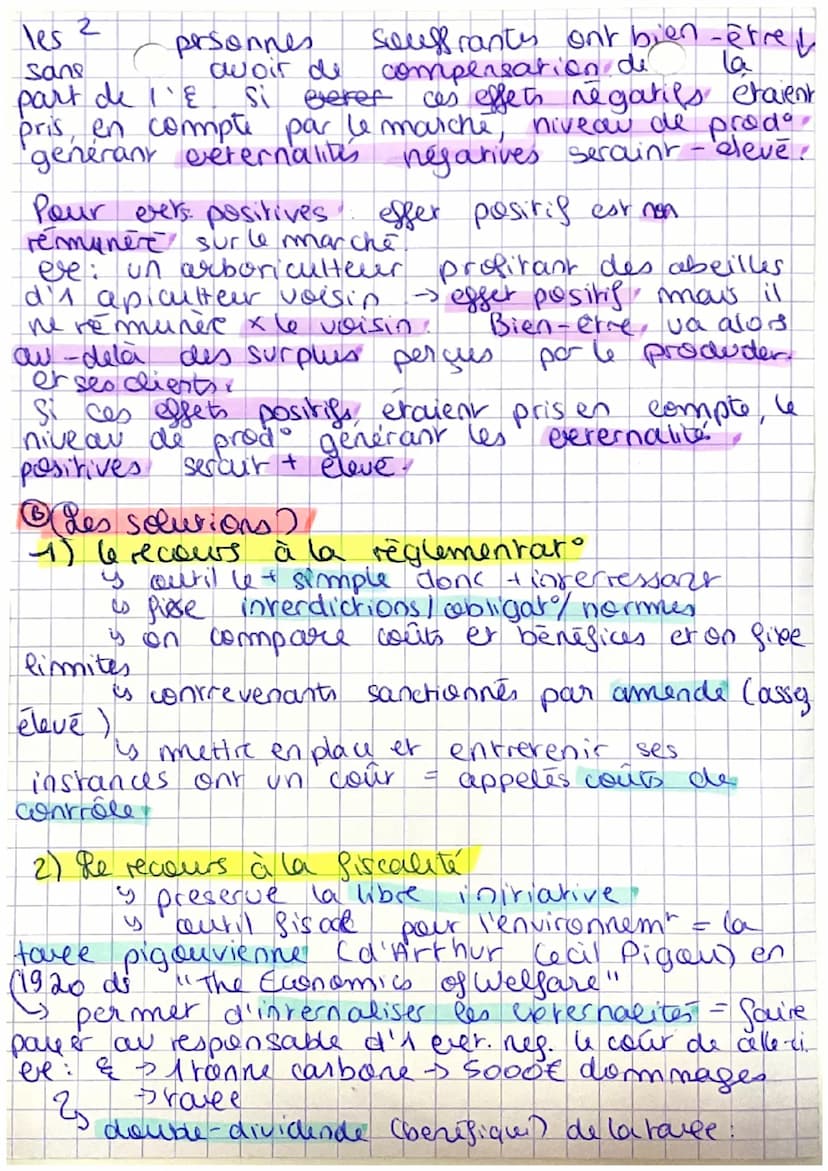 les 2 personnes souffrants ont bien-être ↓
sans avoir de compensation de la
part de l'E. Si ces effets négatifs étaient
pris en compte par le marché, niveau de prod°
générant externalités négatives seraint - élevé.
Pour exers. positives : effet positif est non
rémunéré sur le marché.
exe : un arboriculteur profitant des abeilles
d'1 apiculteur voisin → effet positif mais il
ne rémunère x le voisin. Bien-être va alors
au-delà des surplus perçus par le producter
et ses clients.
Si ces effets positifs étaient pris en compte, le
niveau de prod° générant les externalité
positives serait + élevé.
B (Les solutions)
1) le recours à la réglementat°
↳ outil le + simple donc + interressant
↳ fixe interdictions / obligat°/ normes
↳ on compare coûts et bénéfices et on fixe
limites
↳ contrevenants sanctionnés par amende (assez
élevé)
↳ mettre en place et entretenir ses
instances ont un coût = appelés coûts de
contrôle
2) Le recours à la fiscalité
↳ preserve la libre initiative
↳ outil fiscal pour l'environnemt = la
taxe pigouvienne (d'Arthur Cecil Pigou) en
(1920 ds "The Economics of Welfare"
↳ permet d'internaliser les externalités = faire
payer au responsable d'1 exter. neg. le coût de celle-ci
exe : E → 1 tonne carbone → 5000€ dommages
→ taxe
↳ double-dividende (bénéfique) de la taxe :